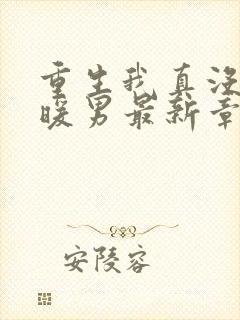 重生我真没
暖男最新章
安陵容